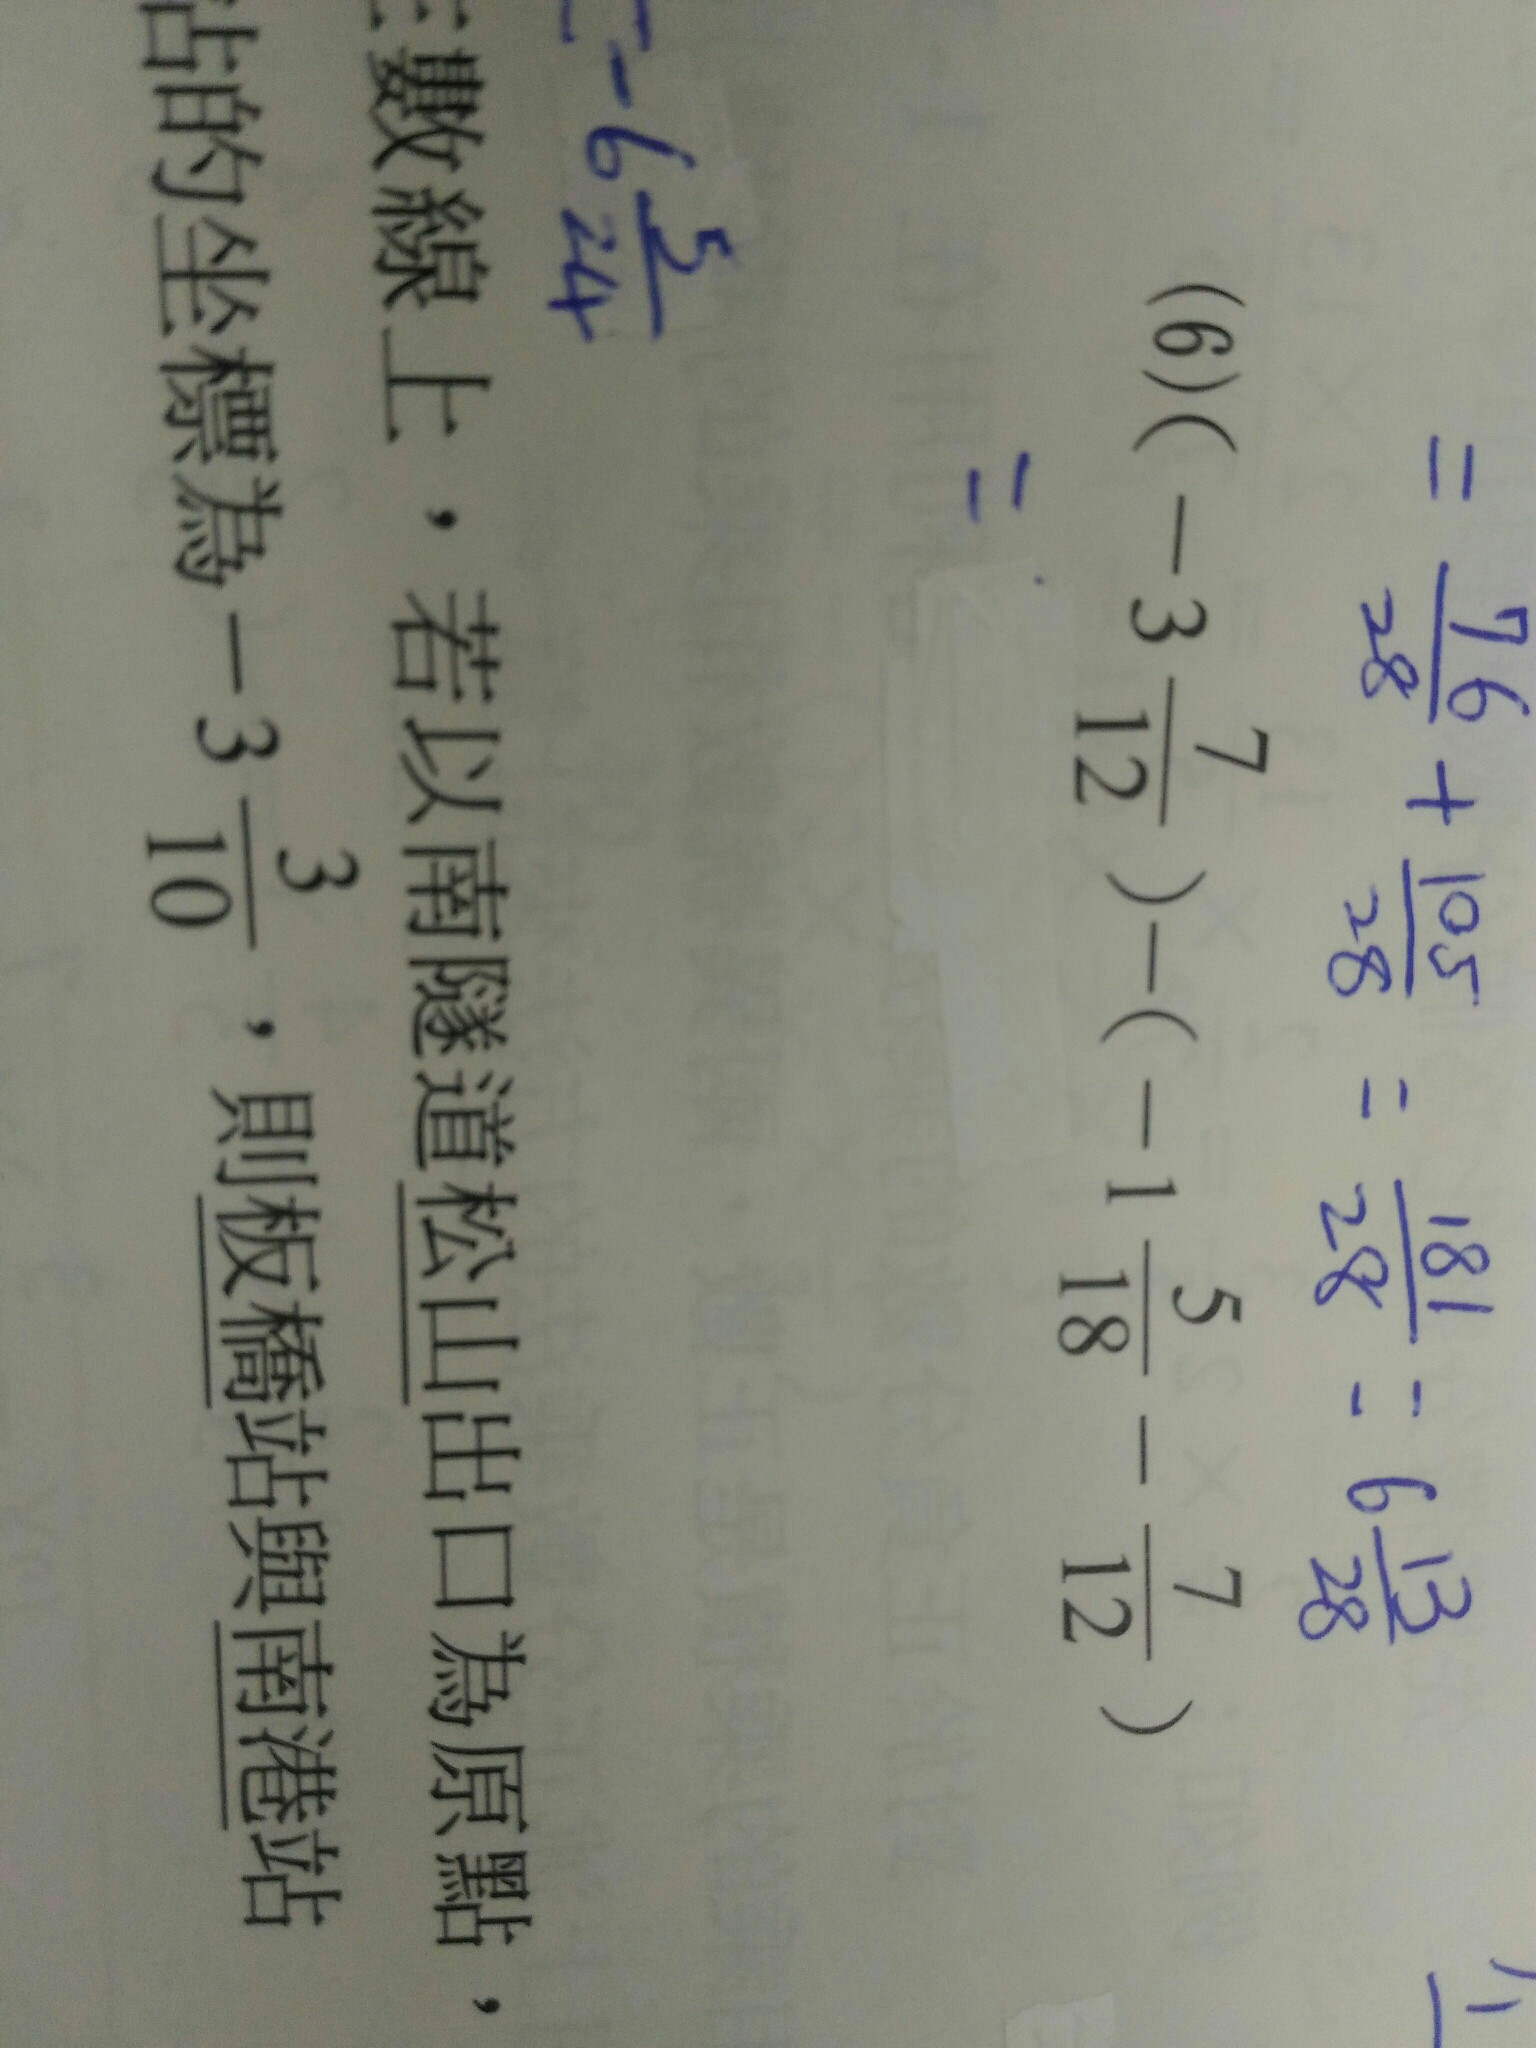 = 76/28 + 105/28 = 181/28 = 6 13/28
(6)(－3 7/12)－(－1 5/18 － 7/12)
=
-6 5/24
數線上，若以南隧道松山出口為原點，
站的坐標為－3 3/10，則板橋站與南港站